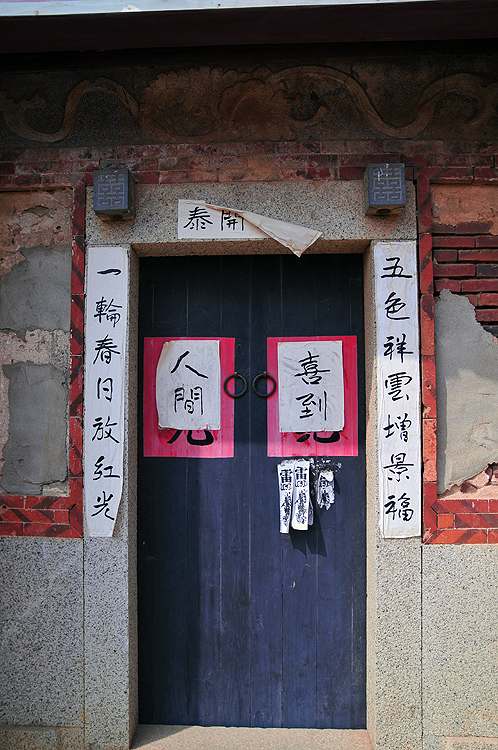 開泰
五色祥雲增景福
喜到
人間
一輪春日放紅光
雷
雷